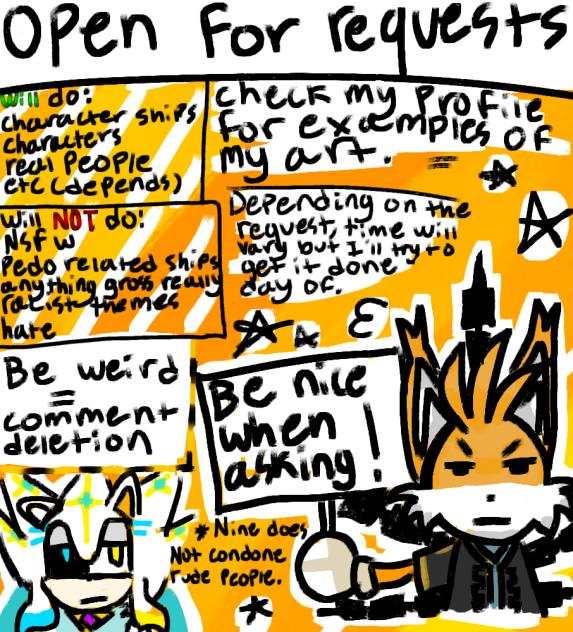 Open for requests
will do:
character ships
characters
real people
etc (depends)
check my profile
for exæmples of
my art.
will NOT do:
Nsfw
Pedo related ships
anything gross really
racist themes
hate
Depending on the
request, time will
vary but I'll try to
get it done
day of.
Be weird
=
comment
deletion
Be nice
when
asking!
* Nine does
Not condone
rude people.